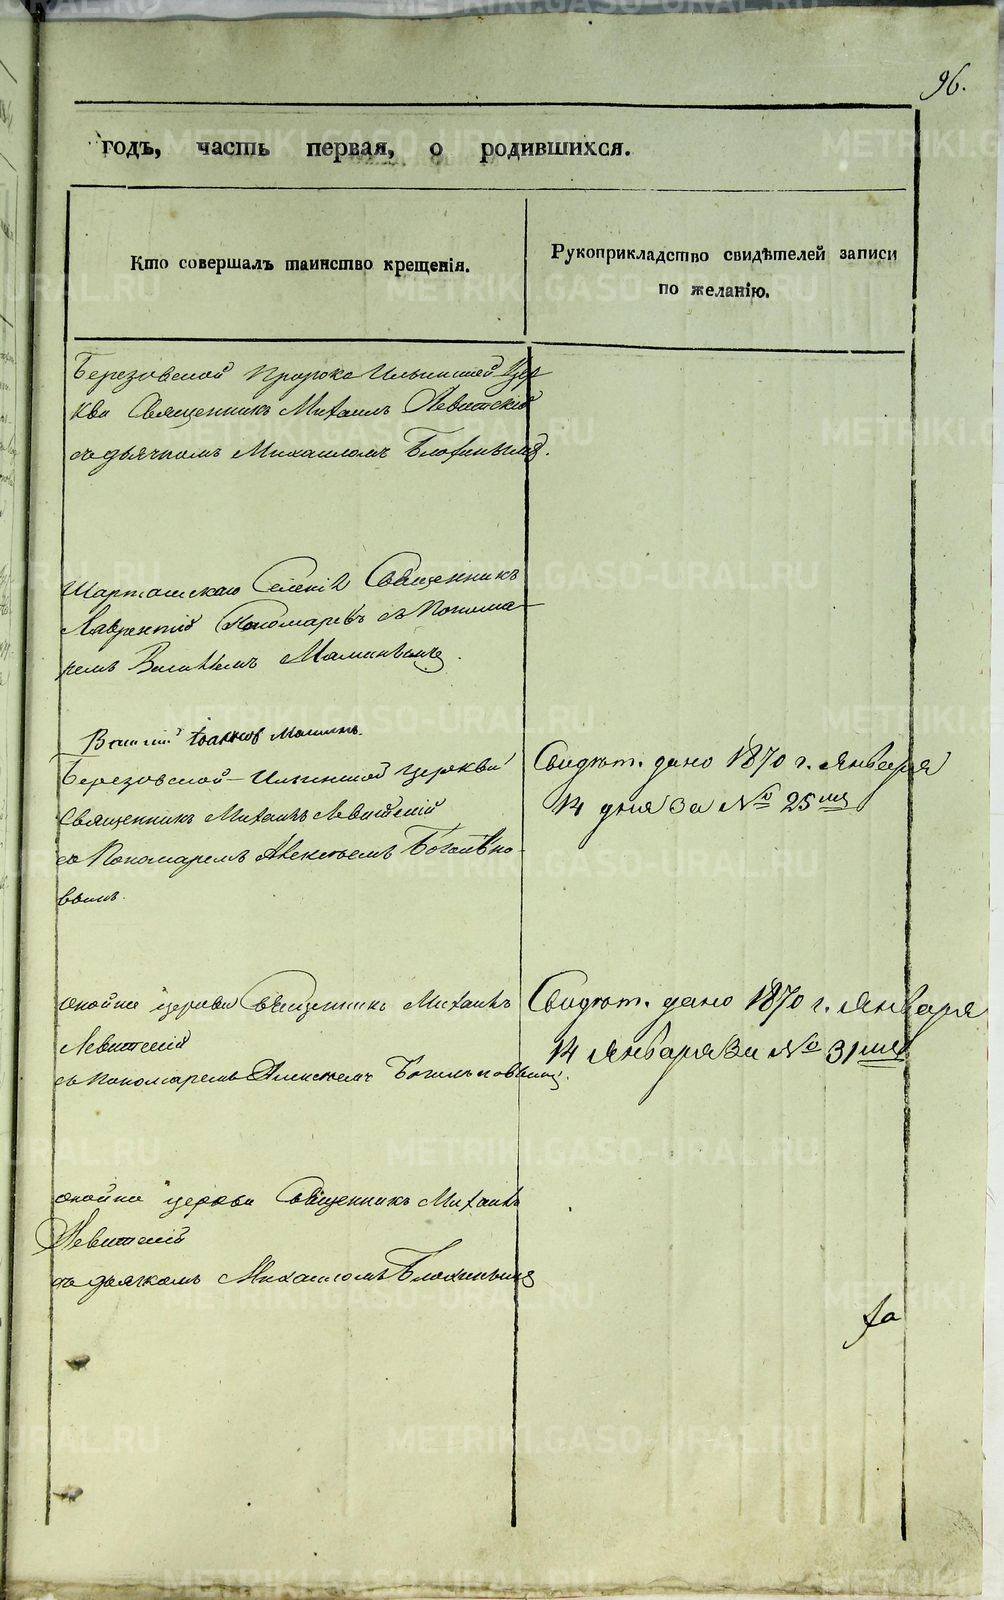 96.
годъ, часть первая, о родившихся.
Кто совершалъ таинство крещенія.
Рукоприкладство свидѣтелей записи
по желанію.
Березовской Пророко Ильинской Цер
кви Священникъ Михаилъ Левитскій
съ дьячкомъ Михаиломъ Блохинымъ.
Шарташскаго Селенія Священникъ
Лаврентій Пономаревъ съ Понома
ремъ
Іоаннов
Березовской Ильинской церкви
Священникъ Михаилъ Левитскій
съ Пономаремъ Алексѣемъ Боголѣпо
вымъ.
Свидѣт. дано 1870 г. Января
14 дня За № 25 мъ
оной церкви Священникъ Михаилъ
Левитскій
съ пономаремъ Алексѣемъ Боголѣповымъ.
Свидѣт. дано 1870 г. Января
14 Января За № 31 мъ
оной церкви Священникъ Михаилъ
Левитскій
съ дьячкомъ Михаиломъ Блохинымъ
METRIKI.GASO-URAL.RU